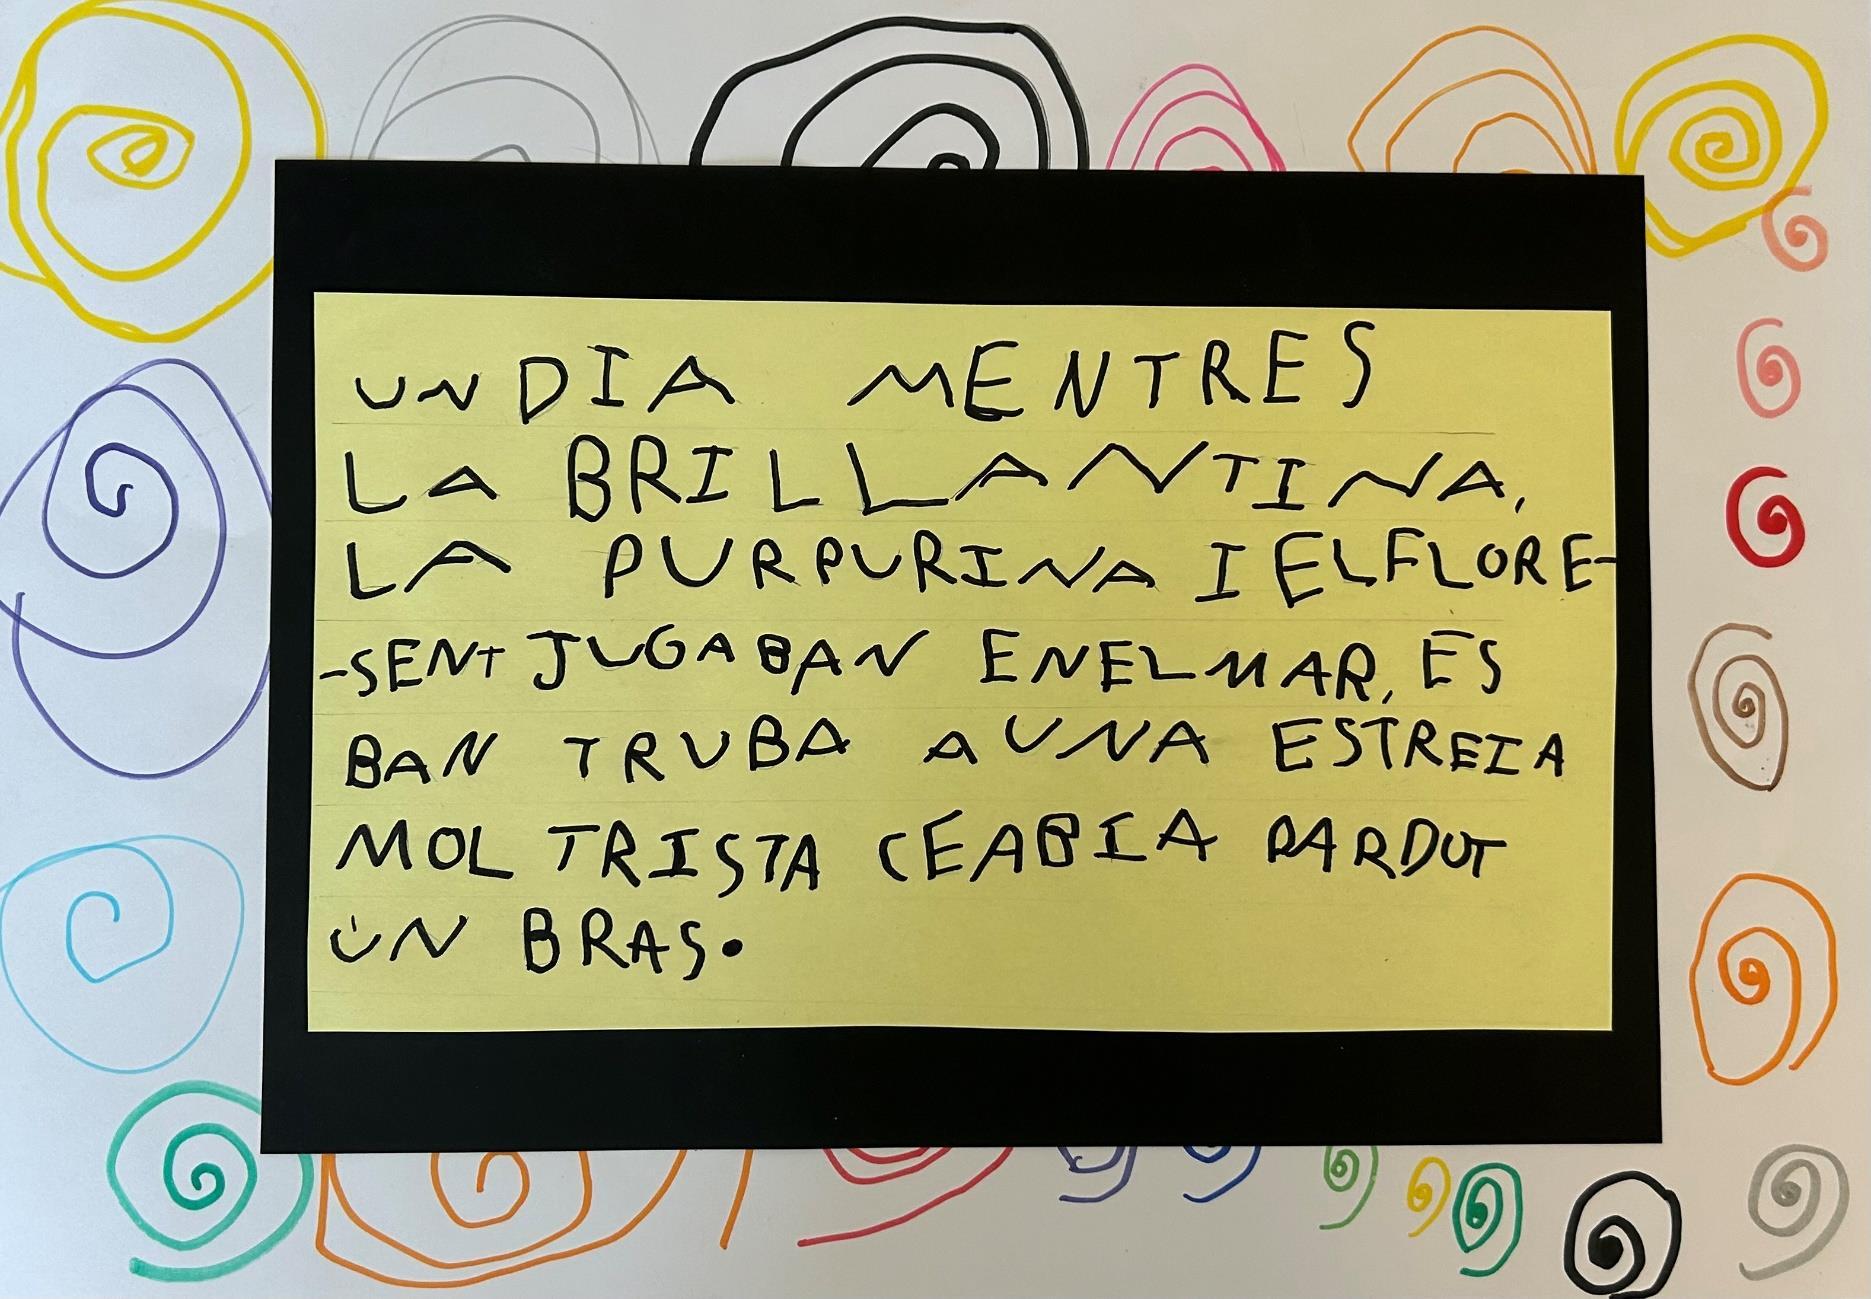 UN DIA MENTRES
LA BRILLANTINA,
LA PURPURINA I ELFLORE-
-SENT JUGABAN ENELMAR, ES
BAN TRUBA A UNA ESTREIA
MOL TRISTA CEABIA PARDUT
UN BRAS.